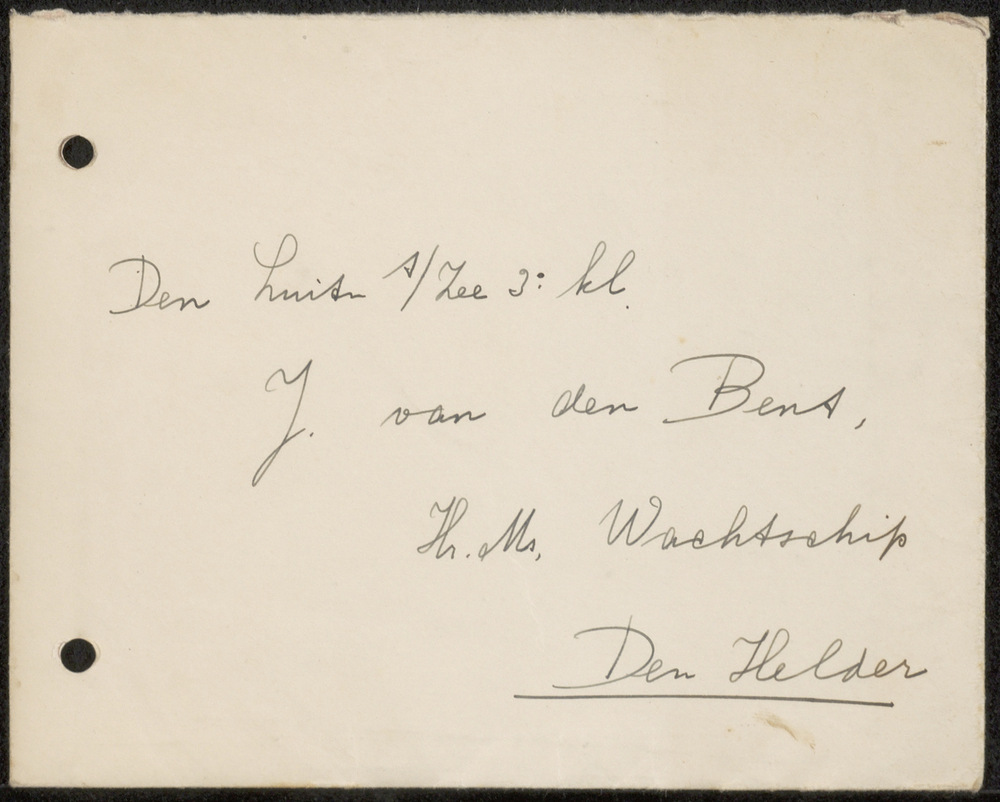 Den Luitn t/Zee 3: kl.
J. van den Bent,
Hr. Ms. Wachtschip
Den Helder